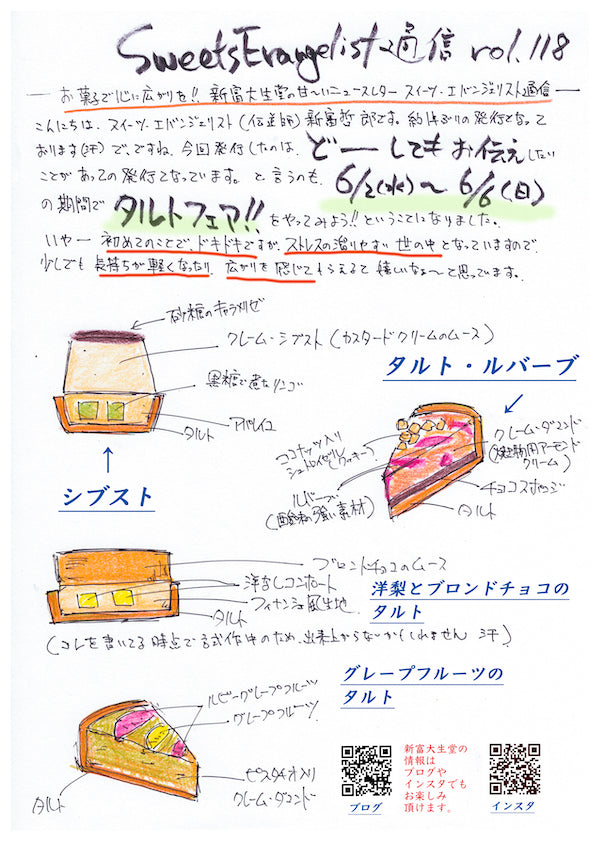 SweetsEvangelist通信 vol.118
お菓子で心に広がりを!! 新富大生堂の甘〜いニュースレター スイーツ・エバンジェリスト通信
こんにちは、スイーツ・エバンジェリスト(伝道師)新富哲郎です。約1年ぶりの発行となって
おります(汗) で、ですね、今回発行したのは、どーしてもお伝えしたい
ことがあっての発行となっています。と言うのも、6/2(水)〜6/6(日)
の期間でタルトフェア!!をやってみよう!!ということになりました。
いやー初めてのことで、ドキドキですが、ストレスの溜りやすい世の中となっていますので、
少しでも気持ちが軽くなったり、広がりを感じてもらえると嬉しいなぁ〜と思っています。
砂糖のキャラメリゼ
クレーム・シブスト(カスタードクリームのムース)
黒糖で煮たリンゴ
アパレイユ
タルト
シブスト
タルト・ルバーブ
ココナッツ入り
シュトロイゼル(クッキー)
クレーム・ダマンド
(焼き物用アーモンド
クリーム)
ルバーブ
(酸味の強い素材)
チョコスポンジ
タルト
ブロンドチョコのムース
洋なしコンポート
フィナンシェ風生地
タルト
洋梨とブロンドチョコの
タルト
(コレを書いてる時点で試作中のため、出来上がらないかもしれません 汗)
グレープフルーツの
タルト
ルビーグレープフルーツ
グレープフルーツ
ピスタチオ入り
クレーム・ダマンド
タルト
新富大生堂の
情報は
ブログや
インスタでも
お楽しみ
頂けます。
ブログ
インスタ